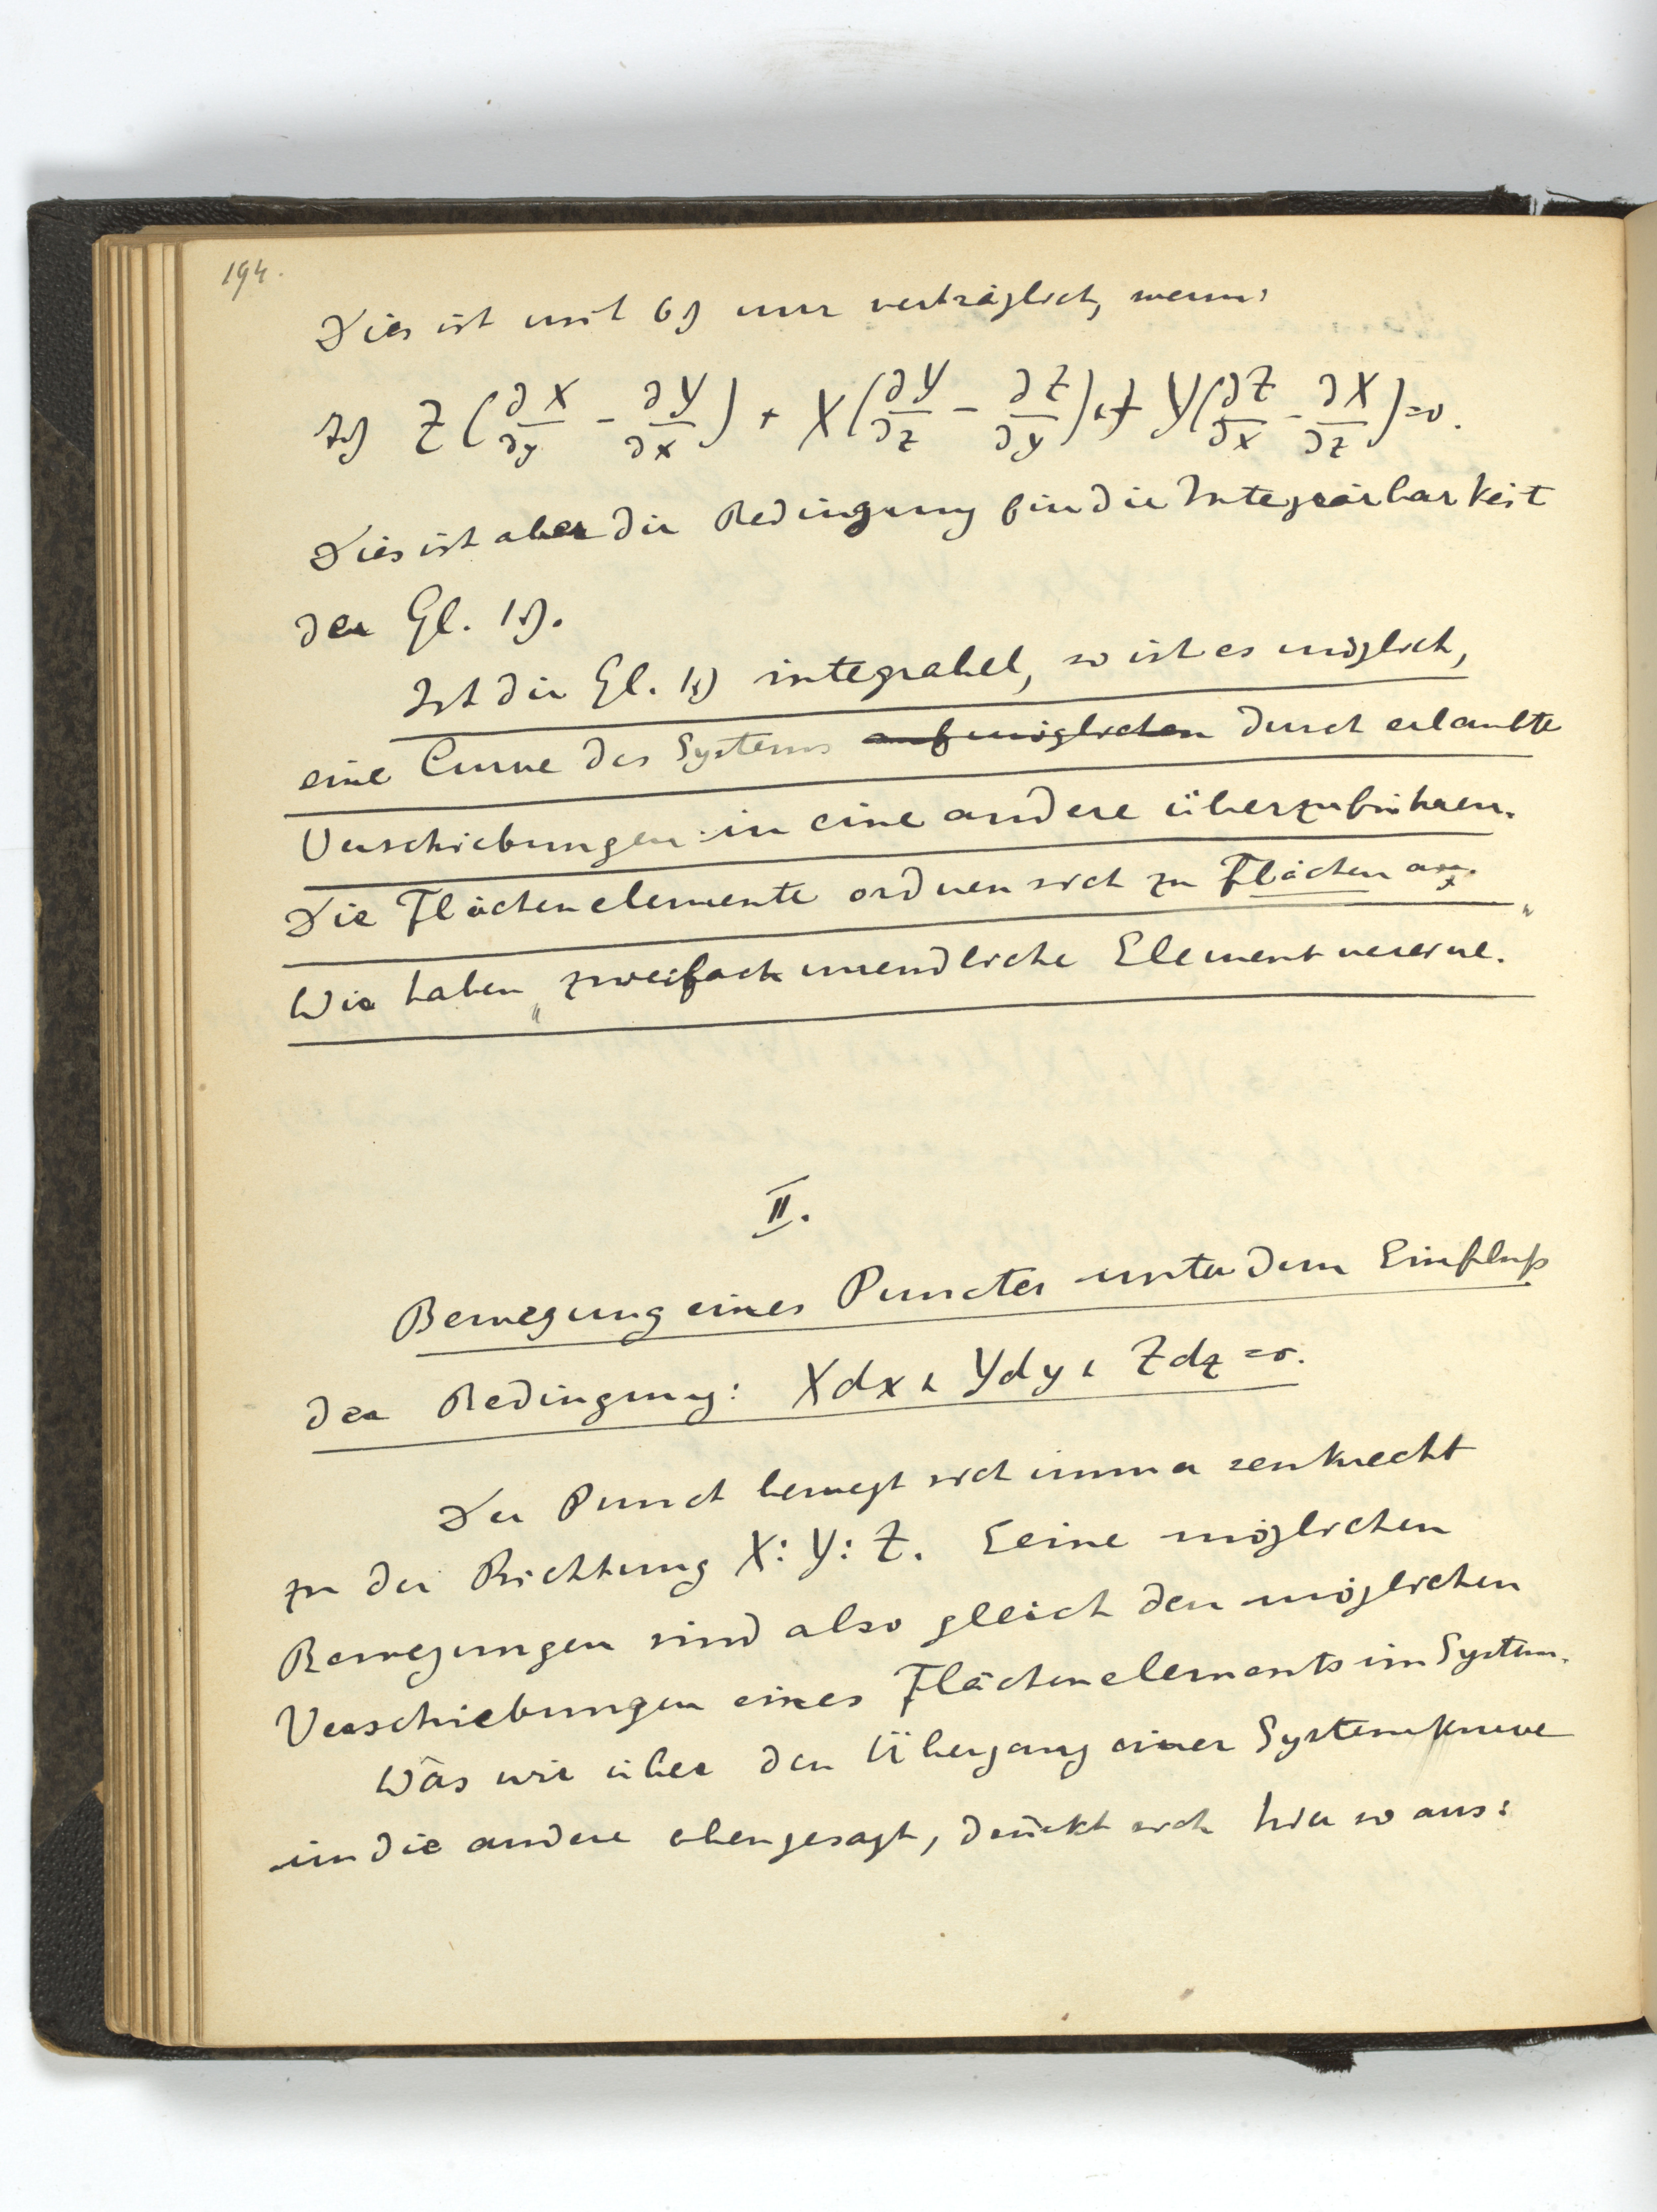 194.
Dies ist mit 6) nur verträglich, wenn:
7) Z(∂X/∂y - ∂Y/∂x) + X(∂Y/∂z - ∂Z/∂y) + Y(∂Z/∂x - ∂X/∂z) = 0.
Dies ist aber die Bedingung für die Integrierbarkeit
der Gl. 1).
Ist die Gl. 1) integrabel, so ist es möglich,
eine Curve des Systems auf möglichen durch erlaubte
Verschiebungen in eine andere überzuführen.
Die Flächenelemente ordnen sich zu Flächen an.
Wir haben „zweifach unendliche Elementvereine."
II.
Bewegung eines Punctes unter dem Einfluß
der Bedingung: Xdx + Ydy + Zdz = 0.
Der Punct bewegt sich immer senkrecht
zu der Richtung X:Y:Z. Seine möglichen
Bewegungen sind also gleich den möglichen
Verschiebungen eines Flächenelements im System.
Was wir über den Übergang einer Systemkurve
in die andere oben gesagt, drückt sich hier so aus: